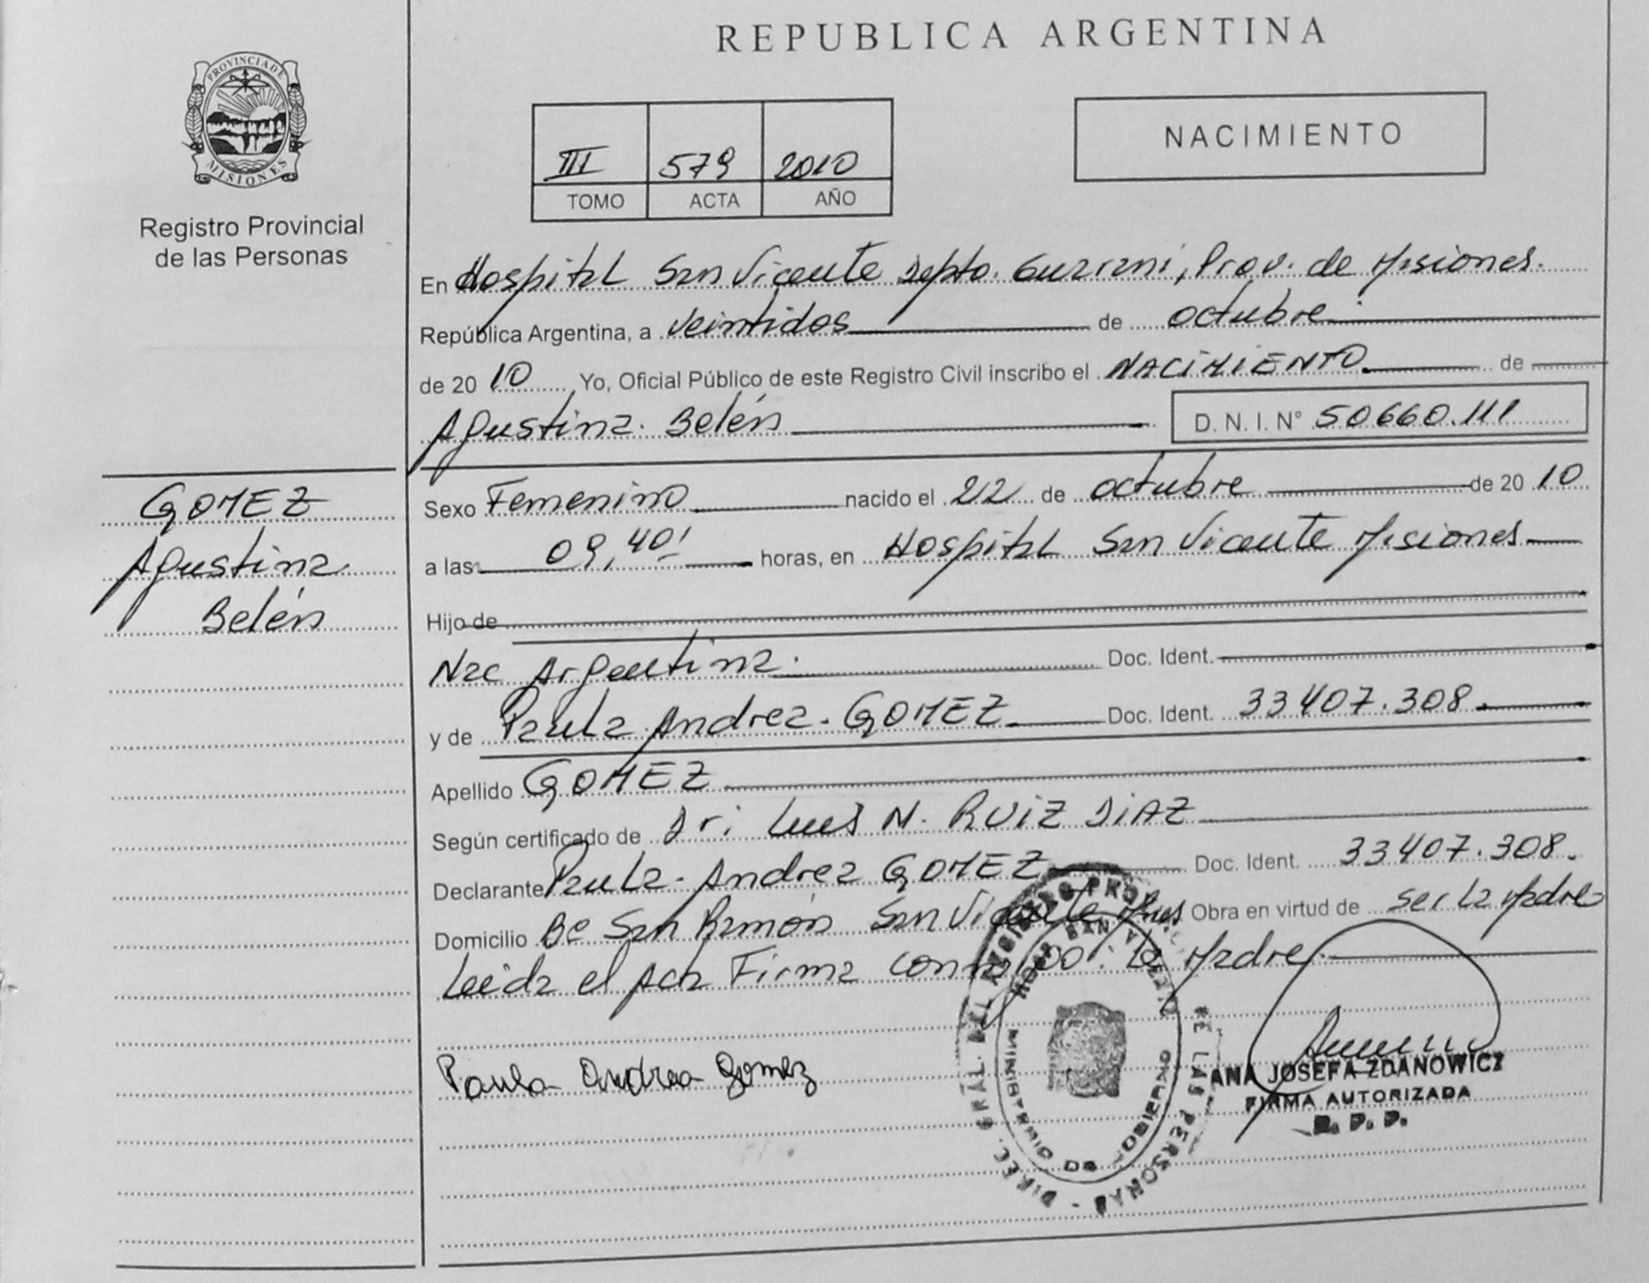 REPUBLICA ARGENTINA
PROVINCIA DE
MISIONES
Registro Provincial
de las Personas
III 579 2010
TOMO ACTA AÑO
NACIMIENTO
En Hospital San Vicente Depto. Guarani, Prov. de Misiones.
República Argentina, a veintidos de octubre
de 20 10 Yo, Oficial Público de este Registro Civil inscribo el NACIMIENTO de
Agustina Belén D. N. I. N° 50660.111
GOMEZ
Agustina
Belén
Sexo Femenino nacido el 22 de octubre de 20 10
a las 09,40' horas, en Hospital San Vicente Misiones
Hijo de
Nac Argentina Doc. Ident.
y de Paula Andrea GOMEZ Doc. Ident. 33407.308
Apellido GOMEZ
Según certificado de Dr: Luis N. RUIZ DIAZ
Declarante Paula Andrea GOMEZ Doc. Ident. 33407.308.
Domicilio Bº San Ramón San Vicente Mnes Obra en virtud de ser la Madre
Leida el Acta Firma conmigo: La Madre
Paula Andrea Gomez
DIREC. GRAL. DEL REGISTRO PROV. DE LAS PERSONAS
SAN VICENTE
MINISTERIO DE GOBIERNO
ANA JOSEFA ZDANOWICZ
FIRMA AUTORIZADA